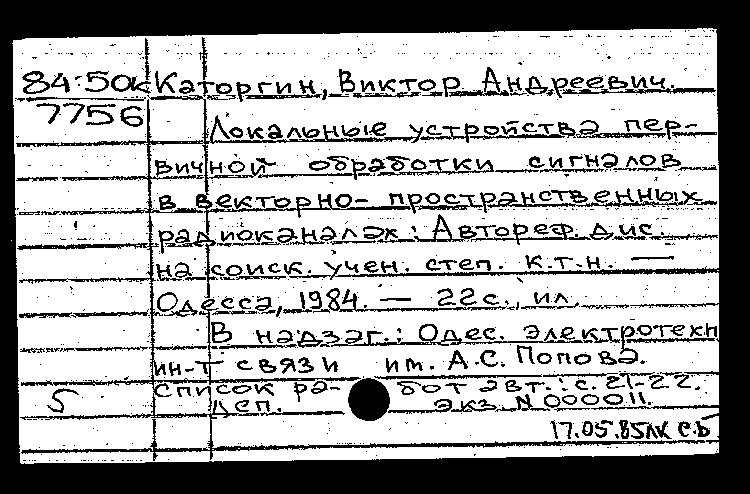 84:50к Каторгин, Виктор Андреевич.
7756
Локальные устройства пер-
вичной обработки сигналов
в векторно-пространственных
радиоканалах: Автореф. дис.
на соиск. учен. степ. к.т.н. —
Одесса, 1984. — 22 с., ил.
В надзаг.: Одес. электротехн
ин-т связи им. А.С. Попова.
Список ра- бот авт.: с. 21-22.
5 Деп. экз. N 000011.
17.05.85 ЛК С.Б